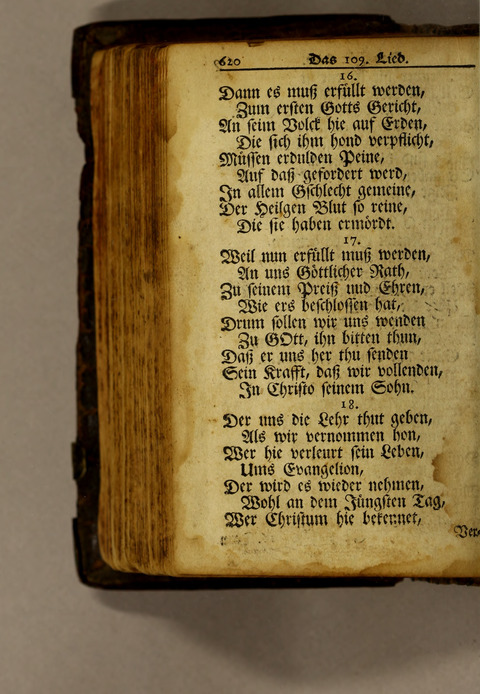 620 Das 109. Lied.
16.
Dann es muß erfüllt werden,
Zum ersten Gotts Gericht,
An seim Volck hie auf Erden,
Die sich ihm hond verpflicht,
Müssen erdulden Peine,
Auf daß gefordert werd,
In allem Gschlecht gemeine,
Der Heilgen Blut so reine,
Die sie haben ermördt.
17.
Weil nun erfüllt muß werden,
An uns Göttlicher Rath,
Zu seinem Preiß und Ehren,
Wie ers beschlossen hat,
Drum sollen wir uns wenden
Zu GOtt, ihn bitten thun,
Daß er uns her thu senden
Sein Krafft, daß wir vollenden,
In Christo seinem Sohn.
18.
Der uns die Lehr thut geben,
Als wir vernommen hon,
Wer hie verleurt sein Leben,
Ums Evangelion,
Der wird es wieder nehmen,
Wohl an dem Jüngsten Tag,
Wer Christum hie bekennet,
Ver-